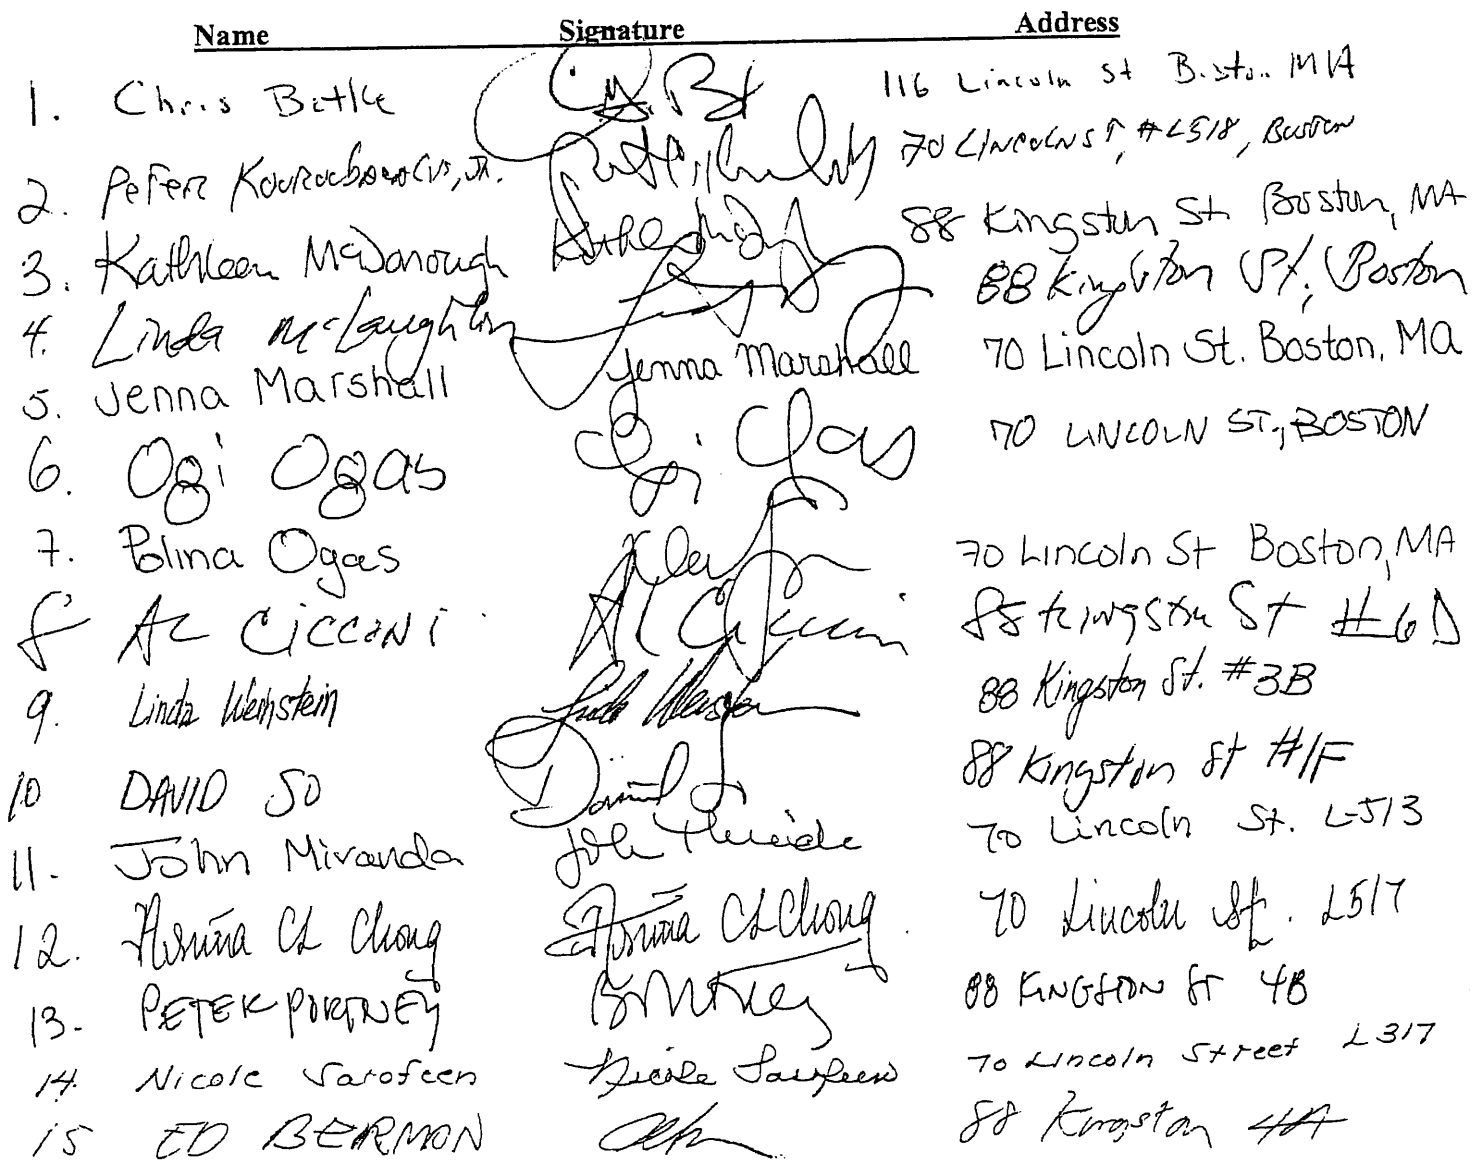 Name Signature Address
1. Chris Betke 116 Lincoln St Boston MA
2. Peter Jr. 70 LINCOLN ST, #L518, Boston
3. Kathleen McDonough 88 Kingston St Boston, MA
4. Linda McLaughlin 88 Kingston St, Boston
5. Jenna Marshall Jenna Marshall 70 Lincoln St. Boston, MA
6. Ogi Ogas Ogi Ogas 70 LINCOLN ST., BOSTON
7. Polina Ogas 70 Lincoln St Boston, MA
8 AL CICCONI Al Cicconi 88 Kingston St #6D
9. Linda Weinstein Linda Weinstein 88 Kingston St. #3B
10 DAVID SO David So 88 Kingston St #1F
11. John Miranda John 70 Lincoln St. L513
12. CL Chong CL Chong 70 Lincoln St. L517
13. PETER PORTNEY 88 KINGSTON ST 4B
14. Nicole Sarofeen Nicole Sarofeen 70 Lincoln Street L317
15 ED BERMON 88 Kingston 4A